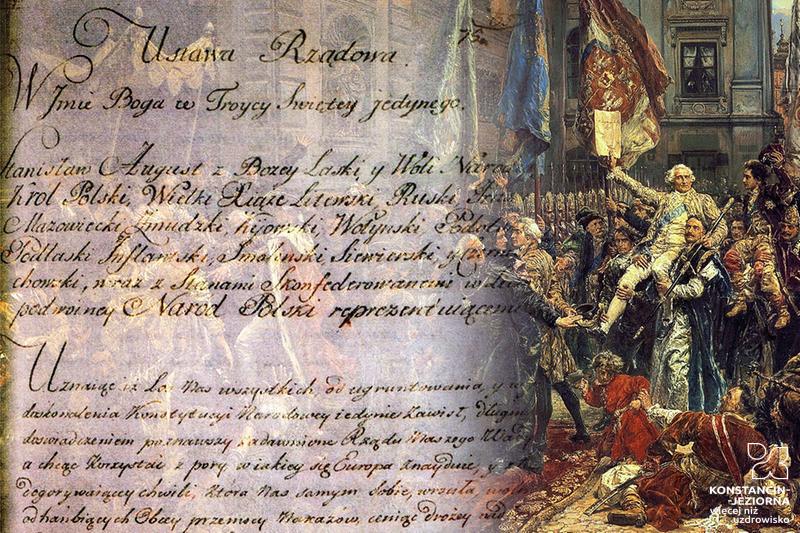 Ustawa Rządowa.
W Jmie Boga w Troycy Swiętey jedynego.
Stanisław August z Bozey Łaski, y Woli Narodu
Krol Polski, Wielki Xiąze Litewski, Ruski,
Mazowiecki, Zmudzki, Kijowski, Wołynski, Podol
Podlaski Inflantski, Smolenski Siewierski, y Czernie
chowski, wraz z Stanami Skonfederowanemi w licz
podwoiney Narod Polski reprezentuiącemi
Uznaiąc iż Los nas wszystkich, od ugruntowania, y
doskonalenia Konstytucyi Narodowey iedynie zawisł, długim
doswiadczeniem poznawszy zadawnione Rządu Naszego Wady
a chcąc korzystać z pory w iakiey się Europa znayduie, y z
dogorywaiącey chwili, ktora nas samym Sobie, wrociła, wolni
od hańbiących Obcey przemocy Nakazow, ceniąc drożey nad
KONSTANCIN-
-JEZIORNA
więcej niż
uzdrowisko